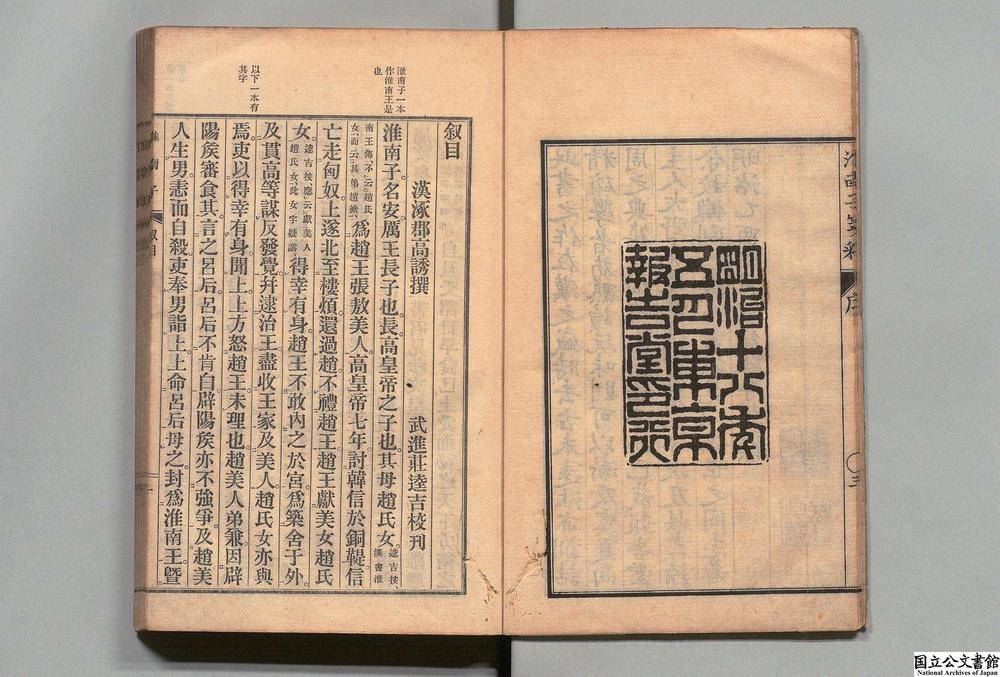 明治十八年
五月東京
報告堂印行
叙目
漢涿郡高誘撰
武進莊逵吉校刊
淮南子一本
作淮南王是
也
淮南子名安厲王長子也長高皇帝之子也其母趙氏女逵吉按漢書淮
南王傳不云趙氏女而云其弟趙兼爲趙王張敖美人高皇帝七年討韓信於銅鞮信
亡走匈奴上遂北至樓煩還過趙不禮趙王趙王獻美女趙氏
女逵吉按應云獻美人趙氏女此女字疑譌得幸有身趙王不敢內之於宮爲築舍于外
及貫高等謀反發覺幷逮治王盡收王家及美人趙氏女亦與
以下一本有
其字
焉吏以得幸有身聞上上方怒趙王未理也趙美人弟兼因辟
陽侯審食其言之呂后呂后不肯白辟陽侯亦不強爭及趙美
人生男恚而自殺吏奉男詣上上命呂后母之封爲淮南王曁
淮南子
叙目
序
国立公文書館
National Archives of Japan